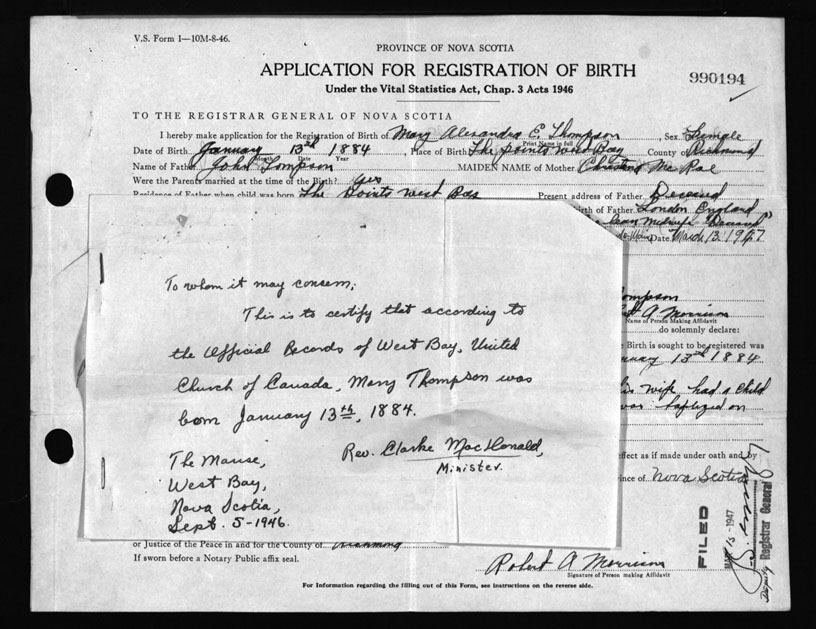 V.S. Form 1—10M-8-46.
PROVINCE OF NOVA SCOTIA
APPLICATION FOR REGISTRATION OF BIRTH
990194
Under the Vital Statistics Act, Chap. 3 Acts 1946
TO THE REGISTRAR GENERAL OF NOVA SCOTIA
I hereby make application for the Registration of Birth of Mary Alexandra E. Thompson, Sex Female
Print Name in full
Date of Birth January 13th 1884, Place of Birth The points West Bay County of Richmond
Month Date Year
Name of Father John Tompson MAIDEN NAME of Mother Christena McRae
Were the Parents married at the time of the Birth? Yes
Residence of Father when child was born The Points West Bay Present address of Father Deceased
Birth of Father London England
midwife
Date March 13. 1947
To whom it may concern;
This is to certify that according to
the Official Records of West Bay, United
Church of Canada, Mary Thompson was
born January 13th, 1884.
Rev. Clarke MacDonald,
Minister.
The Manse,
West Bay,
Nova Scotia,
Sept. 5-1946.
ompson
A Morrison
Name of Person Making Affidavit
do solemnly declare:
Birth is sought to be registered was
13th 1884
his wife had a child
was baptized on
effect as if made under oath and by
ince of Nova Scotia
or Justice of the Peace in and for the County of Richmond
If sworn before a Notary Public affix seal.
Robert A Morrison
Signature of Person making Affidavit
FILED
15 1947
Deputy Registrar General
For Information regarding the filling out of this Form, see instructions on the reverse side.